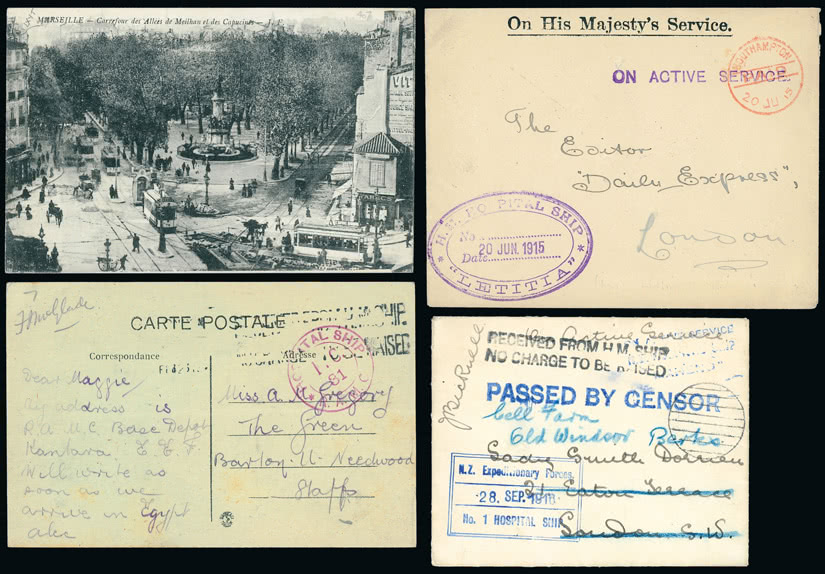 MARSEILLE – Carrefour des Allées de Meilhan et des Capucines
On His Majesty's Service.
ON ACTIVE SERVICE.
SOUTHAMPTON
20 JU 15
The
Editor
"Daily Express",
London
H.M. HO PITAL SHIP
No
20 JUN. 1915
Date
"LETITIA"
CARTE POSTALE
Correspondance
Adresse
HOSPITAL SHIP
Dear Maggie
My address is
R.A.M.C. Base Depot
Kantara E.E.F.
Will write as
soon as we
arrive in Egypt
Miss A. M. Gregory
The Green
Barton-U-Needwood
Staffs
On Active Service
RECEIVED FROM H.M. SHIP
NO CHARGE TO BE RAISED
PASSED BY CENSOR
Cell Farm
Old Windsor Berks
Lady Smith Dorrien
21 Eaton Terrace
London S.W.
N.Z. Expeditionary Forces.
28. SEP. 1916
No. 1 HOSPITAL SHIP